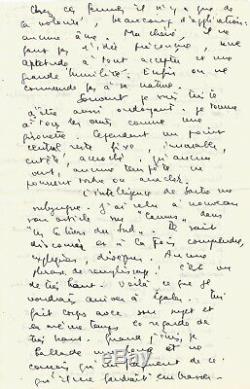 Chez ces femmes il n'y a que de
la volonté, beaucoup d'application
aucune âme. Ma chérie, il ne
faut pas d'idée préconçue, une
aptitude à tout accepter et une
grande humilité. Enfin on ne
commande pas à sa nature.
Souvent je suis
aussi ondoyant. Je tourne
à tous les vents comme une
girouette. Cependant un point
central reste fixe, immuable,
entêté, accroché, qu'aucun
vent, aucune tempête ne
pourront tordre ou arracher.
L'intelligence de Sartre me
subjugue. J'ai relu à nouveau
son article sur "Camus" dans
"les Cahiers du Sud". Il sait
disconcer et à la fois comprendre,
expliquer, disséquer. Aucune
phrase de remplissage. C'est vu
de très haut. Voilà ce que je
voudrais arriver à égaler. Il
fait corps avec son sujet et
en même temps ce regarde de
très haut. Quand
ballade
connais que fragment de ce
qu'il me faudrait embrasser.